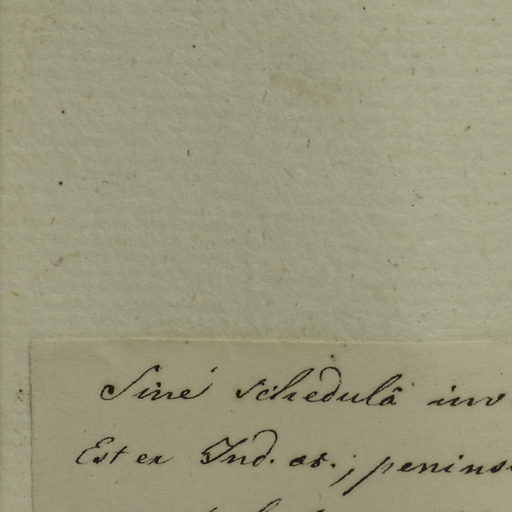 Sine schedulâ inv
Est ex Ind. or.; penins